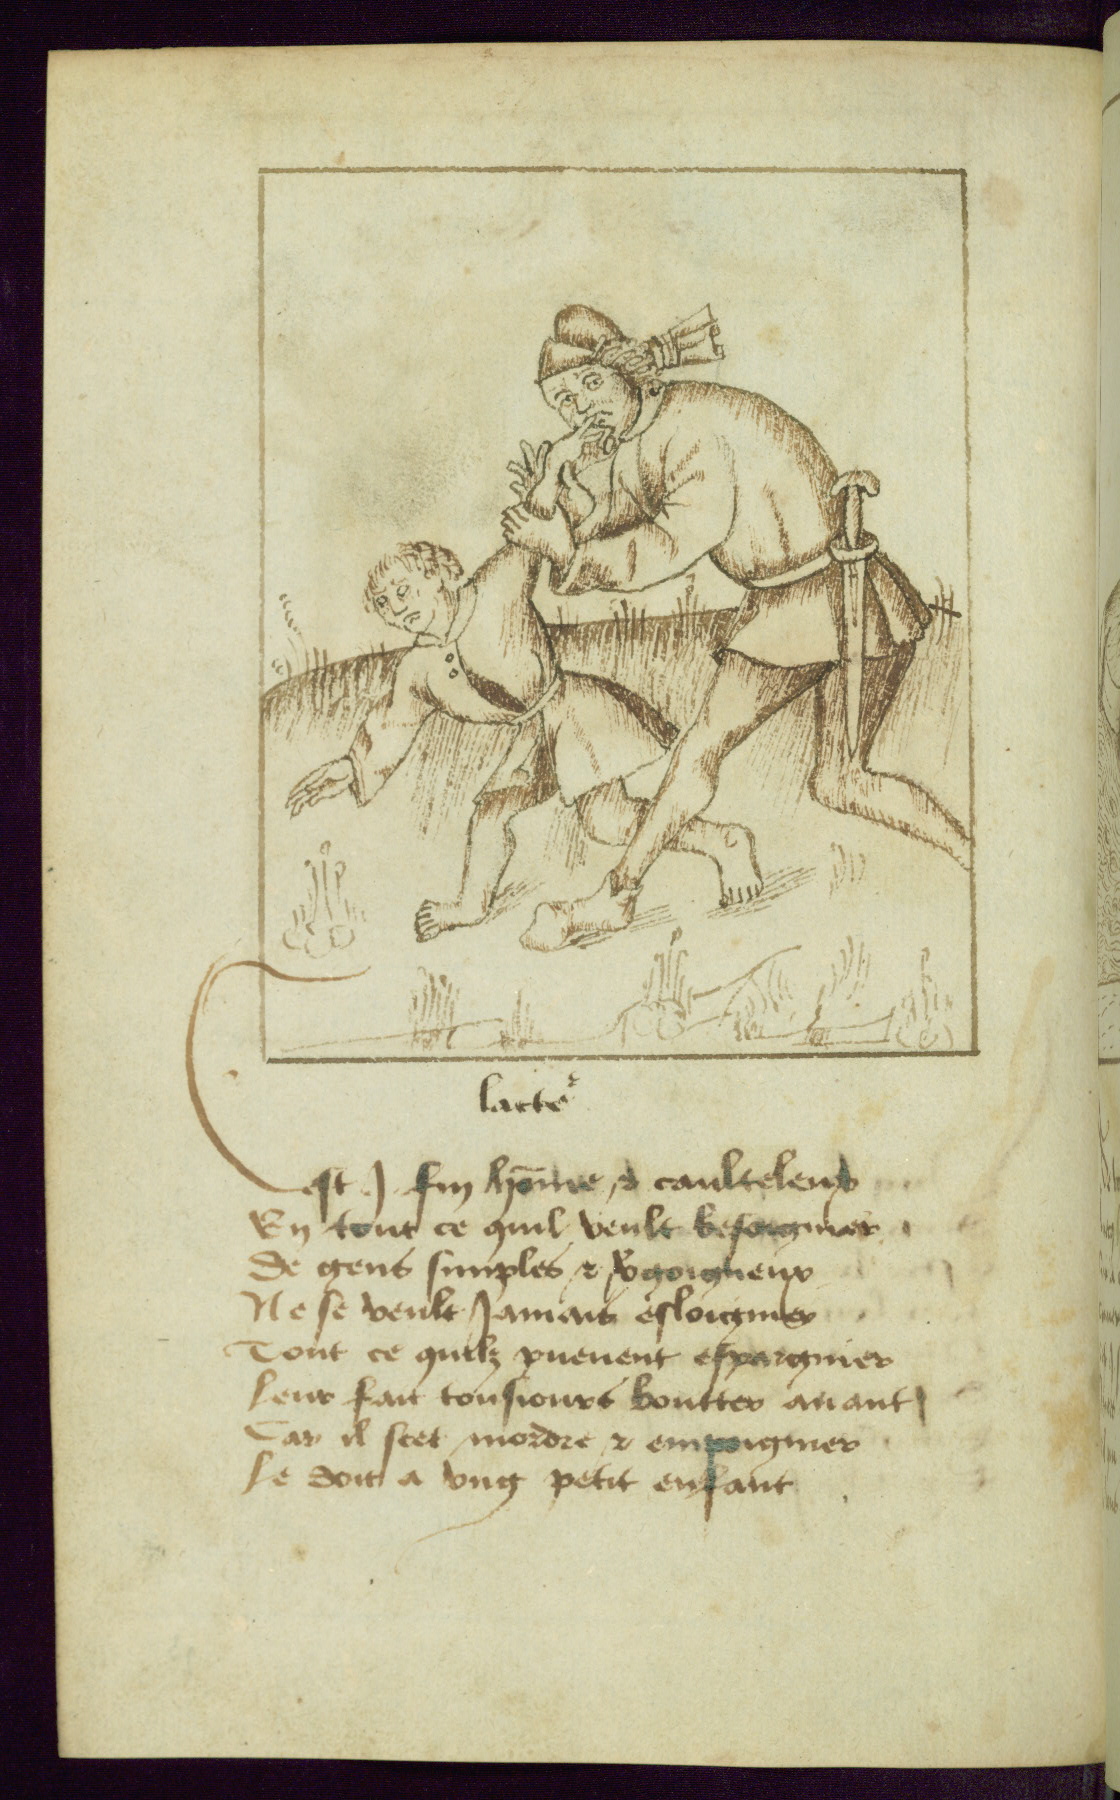 lacteᷣ
Cest J fin hōme & caulteleux
En tout ce quil veult besongnier
De gens simples & v̾goigneux
Ne se veult Jamais esloignier
Tout ce quilz peuent espargnier
leur fait tousiours boutter auant
Car il scet mordre & empoignier
le doit a vng petit enfant